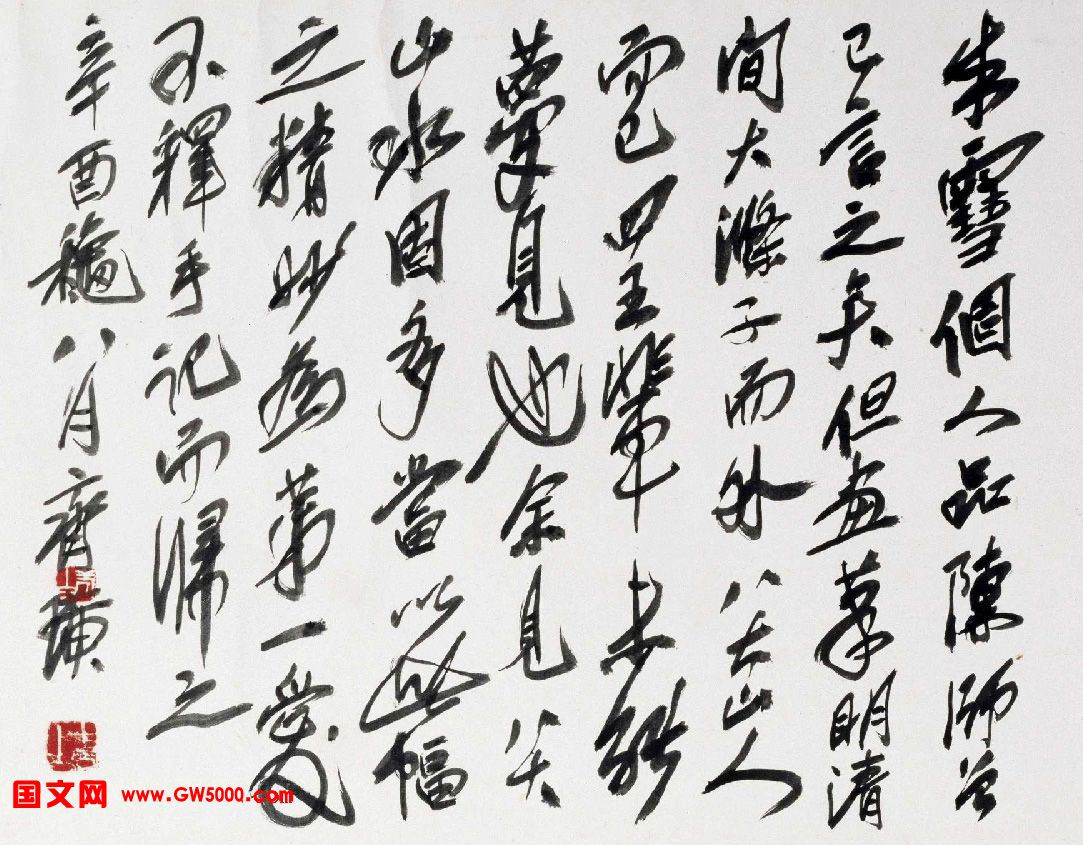 朱雪個人品陳師曾
已言之矣但畫筆明清
間大滌子而外八大山人
而已四王輩未能
夢見也余見八大
山水固多當以此幅
之精妙為第一愛
不釋手記而歸之
辛酉穐八月齊璜
国文网 www.GW5000.com